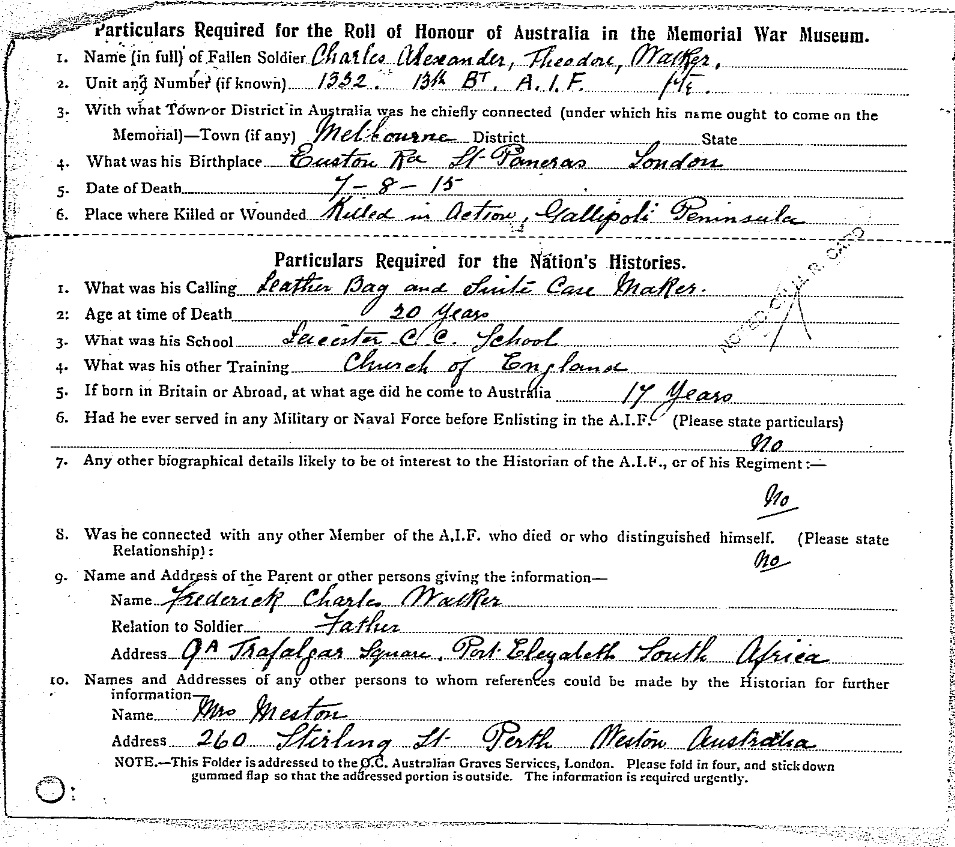 Particulars Required for the Roll of Honour of Australia in the Memorial War Museum.
1. Name (in full) of Fallen Soldier Charles Alexander, Theodore, Walker.
2. Unit and Number (if known) 1332. 13th BT. A.I.F. Pte
3. With what Town or District in Australia was he chiefly connected (under which his name ought to come on the
Memorial)—Town (if any) Melbourne District State
4. What was his Birthplace Euston Rd St Pancras London
5. Date of Death 7-8-15
6. Place where Killed or Wounded Killed in Action, Gallipoli Peninsula
Particulars Required for the Nation's Histories.
1. What was his Calling Leather Bag and Suite Case Maker.
2: Age at time of Death 20 Years
3. What was his School Leicester C.C. School
4. What was his other Training Church of England
5. If born in Britain or Abroad, at what age did he come to Australia 17 Years
6. Had he ever served in any Military or Naval Force before Enlisting in the A.I.F. (Please state particulars)
No
7. Any other biographical details likely to be of interest to the Historian of the A.I.F., or of his Regiment:—
No
8. Was he connected with any other Member of the A.I.F. who died or who distinguished himself. (Please state
Relationship):
No
9. Name and Address of the Parent or other persons giving the information—
Name Frederick Charles Walker
Relation to Soldier Father
Address 9A Trafalgar Square. Port Elezabeth South Africa
10. Names and Addresses of any other persons to whom references could be made by the Historian for further
information—
Name Mrs Meston
Address 260 Stirling St Perth Weston Australia
NOTE.—This Folder is addressed to the O.C. Australian Graves Services, London. Please fold in four, and stick down
gummed flap so that the addressed portion is outside. The information is required urgently.